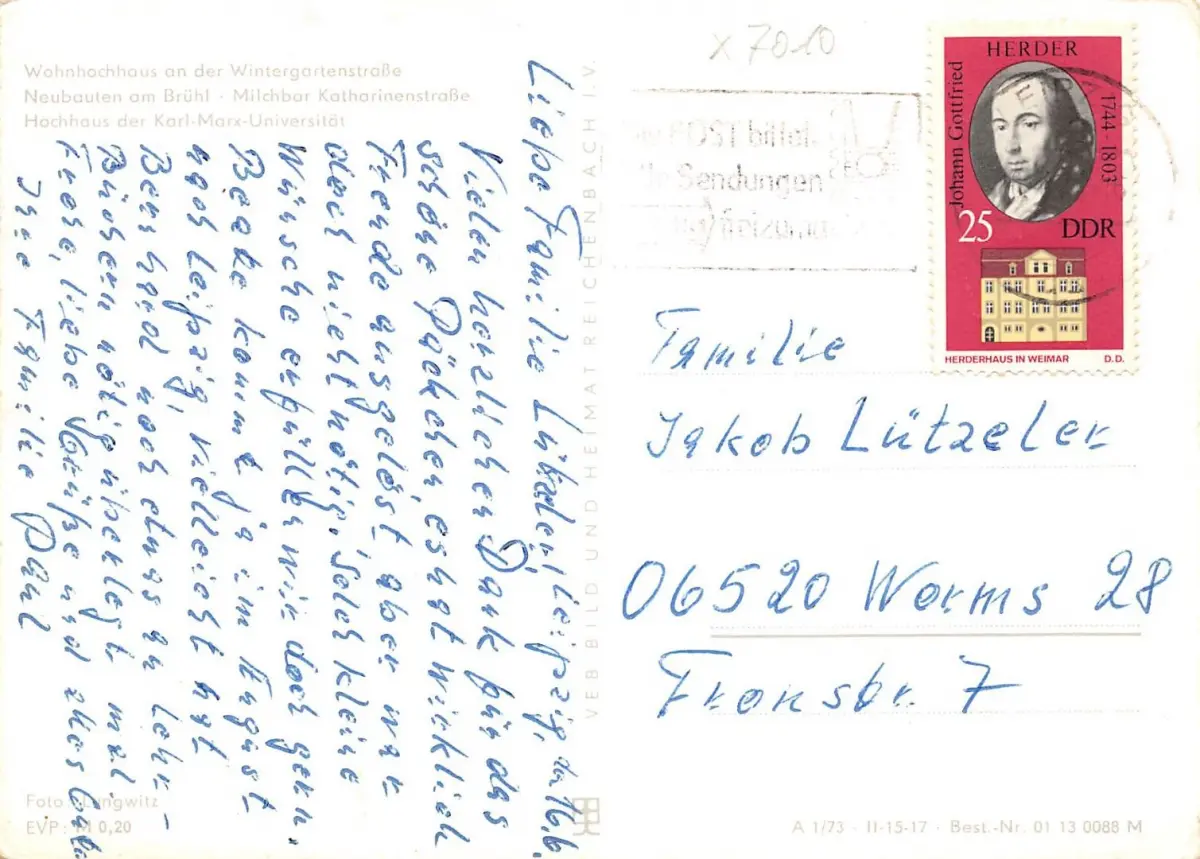 Wohnhochhaus an der Wintergartenstraße
Neubauten am Brühl · Milchbar Katharinenstraße
Hochhaus der Karl-Marx-Universität
Liebe Familie Lützeler, Leipzig, den 16.6.
Vielen herzlichen Dank für das
schöne Päckchen, es hat wirklich
Freude ausgelöst aber war
doch nicht nötig. Solch kleine
Wünsche erfüllen wir doch gern.
Beate kommt ja im August
nach Leipzig, vielleicht hat
Bernhard noch etwas an Lehr-
Büchern nötig, überlegt mal.
Frohe, liebe Grüße und alles Gute
Ihre Familie Pahl
Foto: Langwitz
EVP: M 0,20
VEB BILD UND HEIMAT REICHENBACH I. V.
x 7010
POST bittet
Sendungen
HERDER
Johann Gottfried
1744 - 1803
25
DDR
HERDERHAUS IN WEIMAR D. D.
Familie
Jakob Lützeler
06520 Worms 28
Fronstr. 7
A 1/73 · II-15-17 · Best.-Nr. 01 13 0088 M